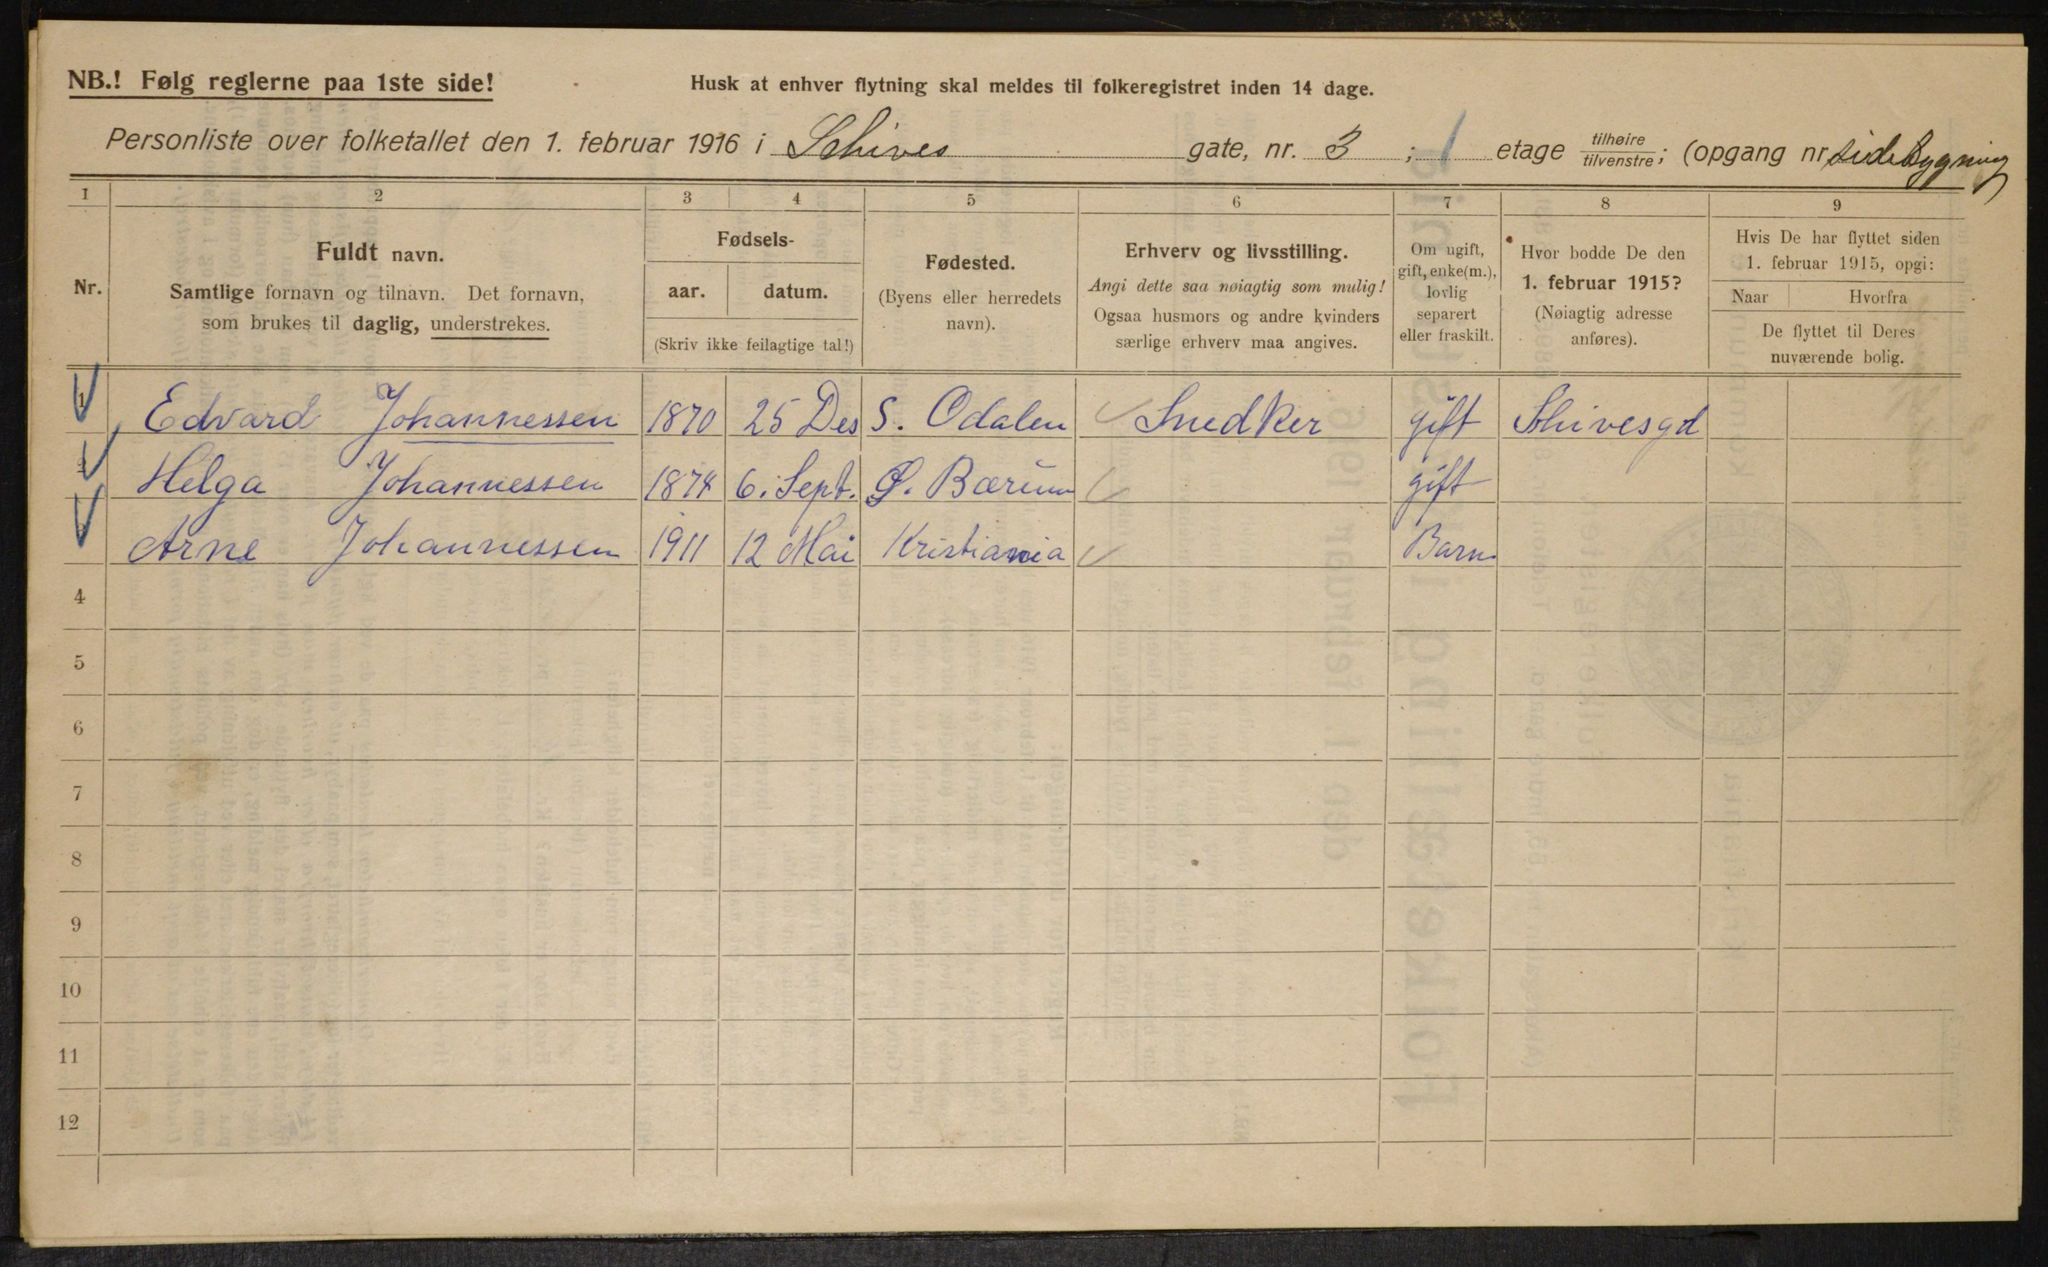 NB.! Følg reglerne paa 1ste side!
Husk at enhver flytning skal meldes til folkeregistret inden 14 dage.
Personliste over folketallet den 1. februar 1916 i Schives gate, nr. 3 ; 1 etage tilhøire/tilvenstre; (opgang nr sidebygning
1 2 3 4 5 6 7 8 9
Nr.
Fuldt navn.
Samtlige fornavn og tilnavn. Det fornavn,
som brukes til daglig, understrekes.
Fødsels-
aar. datum.
(Skriv ikke feilagtige tal!)
Fødested.
(Byens eller herredets
navn).
Erhverv og livsstilling.
Angi dette saa nøiagtig som mulig!
Ogsaa husmors og andre kvinders
særlige erhverv maa angives.
Om ugift,
gift, enke(m.),
lovlig
separert
eller fraskilt.
Hvor bodde De den
1. februar 1915?
(Nøiagtig adresse
anføres).
Hvis De har flyttet siden
1. februar 1915, opgi:
Naar Hvorfra
De flyttet til Deres
nuværende bolig.
1 Edvard Johannessen 1870 25 Des S. Odalen Snedker gift Schivesgd
2 Helga Johannessen 1874 6. Sept. Ø. Bærum gift
3 Arne Johannessen 1911 12 Mai Kristiania Barn
4
5
6
7
8
9
10
11
12